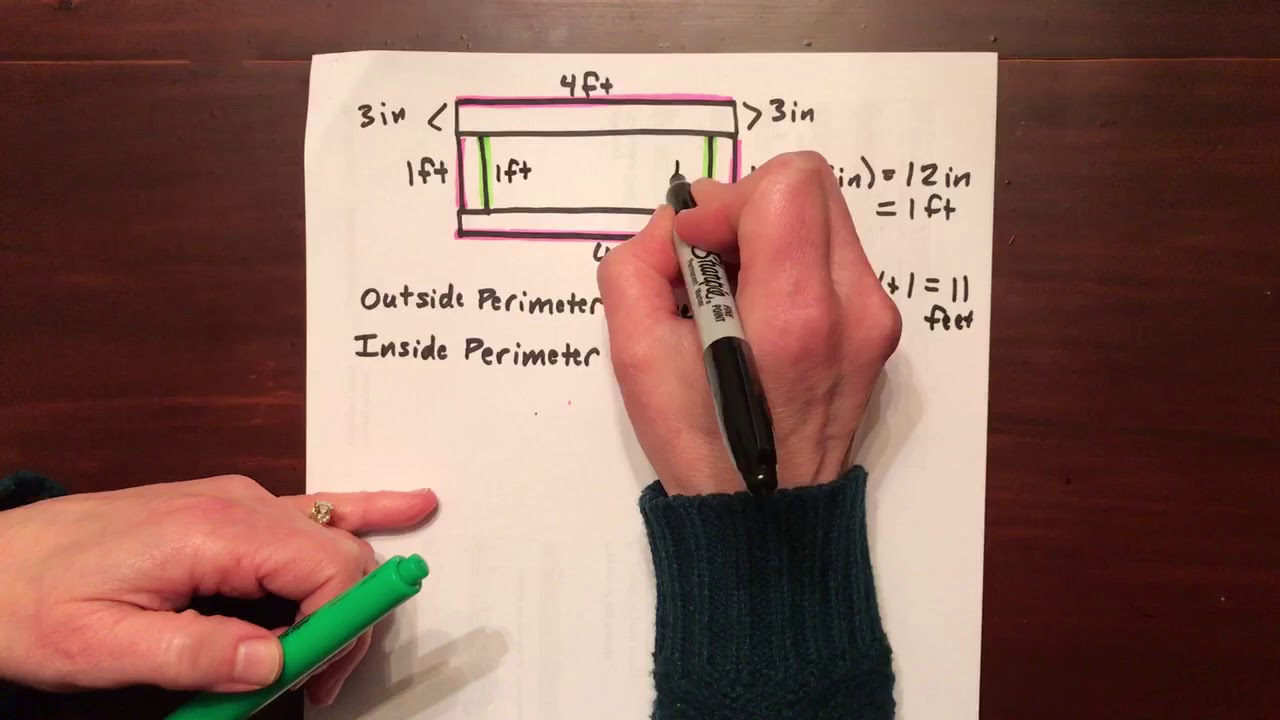 4ft
3in < > 3in
1ft 1ft 1 in) = 12 in
= 1 ft
4
Outside Perimeter + 1 = 11
feet
Inside Perimeter
Sharpie
FINE
POINT